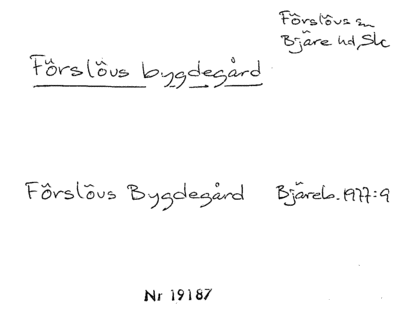 Förslövs sn
Bjäre hd, Sk
Förslövs bygdegård
Förslövs Bygdegård Bjäreb. 1977:9
Nr 19187